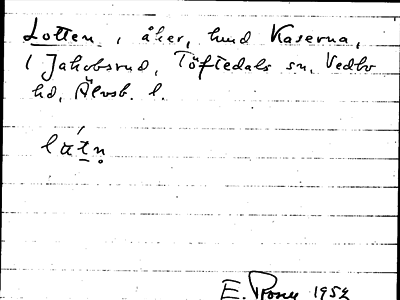 Lotten, åker, hmd Kaserna,
1 Jakobsrud, Töftedals sn, Vedbo
hd, Älvsb. l.
E. 1952